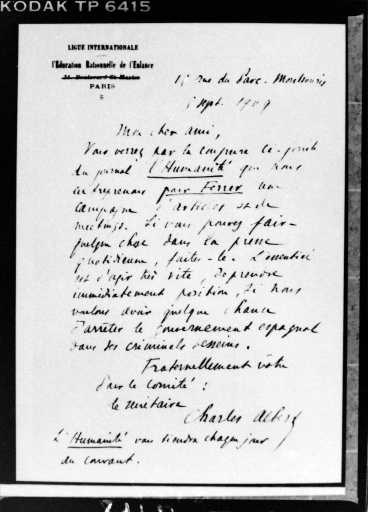 KODAK TP 6415
LIGUE INTERNATIONALE
l'Education Rationnelle de l'Enfance
PARIS
15 rue du Parc-Montsouris
5 sept. 1909
Mon cher ami,
Vous verrez par la coupure ci-jointe
du journal l'Humanité que nous
entreprenons pour Ferrer une
campagne d'articles et de
meetings. Si vous pouvez faire
quelque chose dans la presse
quotidienne, faites-le. L'essentiel
est d'agir très vite, de prendre
immédiatement position, si nous
voulons avoir quelque chance
d'arrêter le gouvernement espagnol
dans ses criminels desseins.
Fraternellement vôtre
Pour le comité :
le secrétaire
Charles Albert
L'Humanité vous tiendra chaque jour
au courant.